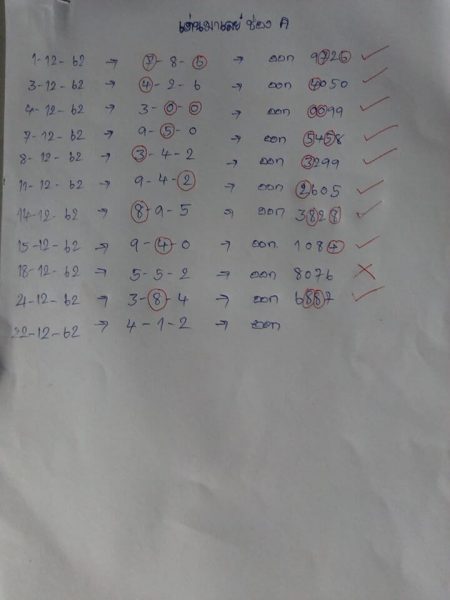 เด่นมาเลย์ ช่อง A
1-12-62 → 7-8-6 → ออก 9726 ✓
3-12-62 → 4-2-6 → ออก 4050 ✓
4-12-62 → 3-0-0 → ออก 0099 ✓
7-12-62 → 9-5-0 → ออก 5458 ✓
8-12-62 → 3-4-2 → ออก 3299 ✓
11-12-62 → 9-4-2 → ออก 2605 ✓
14-12-62 → 8-9-5 → ออก 3828 ✓
15-12-62 → 9-4-0 → ออก 1084 ✓
18-12-62 → 5-5-2 → ออก 8076 ✗
21-12-62 → 3-8-4 → ออก 6887 ✓
22-12-62 → 4-1-2 → ออก